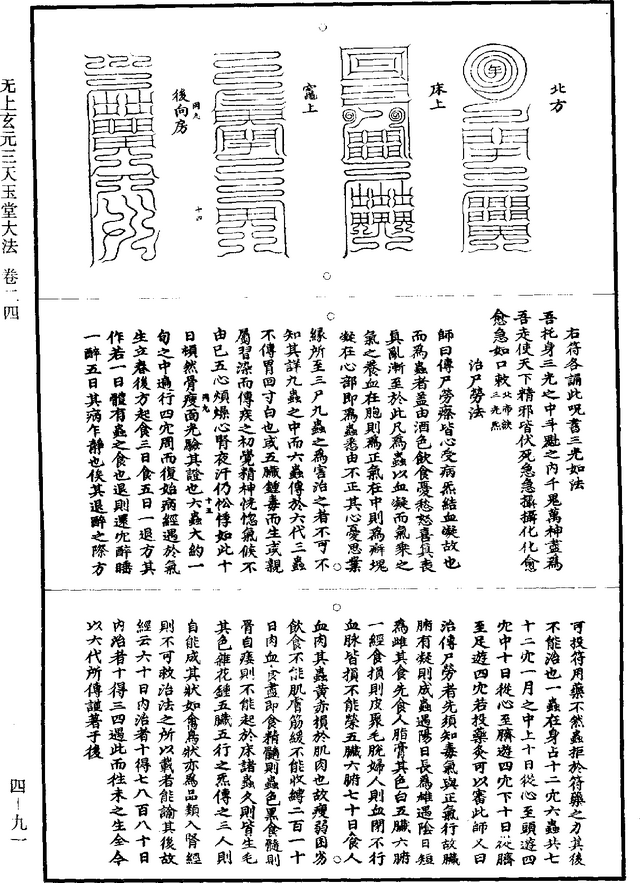 无上玄元三天玉堂大法　卷二四
四－九一
北方
床上
竈上
後向房
右符各誦此呪書三光如法
吾托身三光之中斗魁之内千鬼萬神盡爲
吾走使天下精邪皆伏死急急攝攝化化愈
愈急如口敕
治尸勞法
師曰傳尸勞瘵皆心受病炁結血凝故也
而爲蟲者蓋由酒色飲食憂愁怒喜具喪
真亂漸至於此凡爲蟲以血凝而氣乘之
氣之養血在胞則爲正氣在中則爲癖塊
凝在心部即爲蟲悉由不正其心憂思業
緣所至三尸九蟲之爲害治之者不可不
知其詳九蟲之中而六蟲傳於六代三蟲
不傳胃回寸白也或五臟鍾毒而生或親
屬習染而傳疾之初覺精神恍惚氣候不
由已五心煩燥心腎夜汗仍忪悸如此十
日頓然骨瘦面光驗其證也六蟲大約一
旬之中遍行四穴周而復始病經遇於氣
生立春後方起食三日食五日一退方其
作若一日體有蟲之食也退則還穴醉睡
一醉五日其病乍靜也俟其退醉之際方
可投符用藥不然蟲拒於符藥之力其後
不能治也一蟲在身占十二穴六蟲共七
十二穴一月之中上十日從心至頭遊四
穴中十日從心至臍遊四穴下十日從臍
至足遊四穴若投藥灸可以審此師又曰
治傳尸勞者先須知毒氣與正氣行故臟
腑有凝則成蟲遇陽日長爲雄遇陰日短
爲雌其食先食人脂膏其色白五臟六腑
一經食損則皮聚毛脫婦人則血閉不行
血脉皆損不能榮五臟六腑七十日食人
血肉其蟲黄赤損於肌肉也故瘦弱困劣
飲食不能肌膚筋緩不能收縛二百一十
日肉血盡即食精髓則蟲色黑食髓則
骨自痿則不能起於床諸蟲久則皆生毛
其色雜花鍾五臟五行之炁傳之三人則
自能成其狀如禽爲狀亦爲品類入腎經
則不可救治法之所以載者能諭其後故
經云六十日内治者十得七八百八十日
内治者十得三四過此而往未之生全今
以六代所傳謹著于後